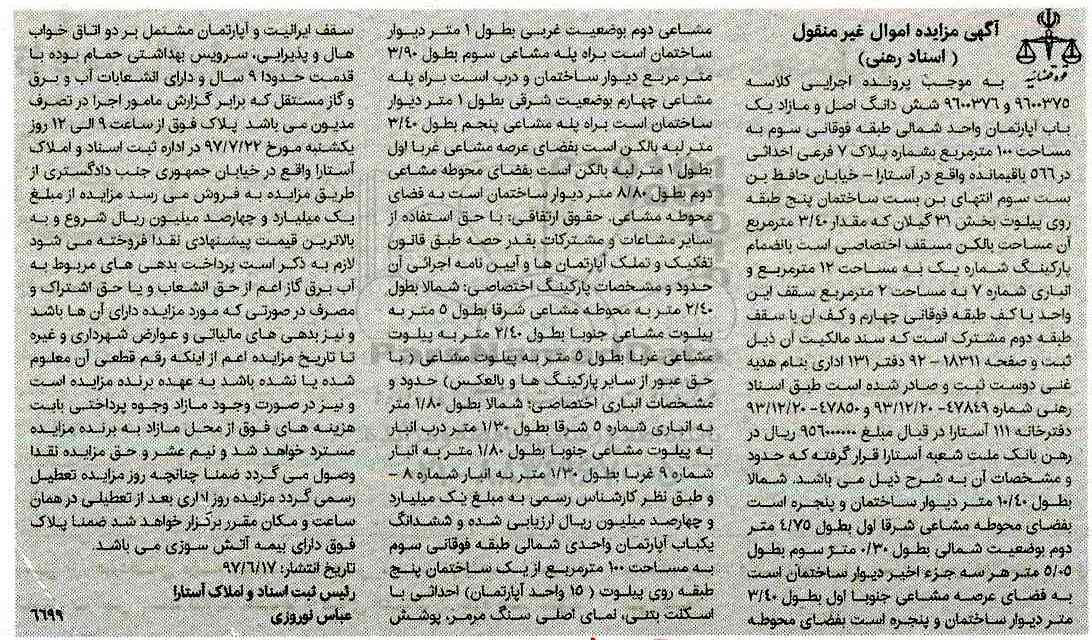 آگهی مزایده اموال غیر منقول
( اسناد رهنی)
قوه قضائیه
به موجب پرونده اجرایی کلاسه
۹۶۰۰۳۷۵ و ۹۶۰۰۳۷۶ شش دانگ اصل و مازاد یک
باب آپارتمان واحد شمالی طبقه فوقانی سوم به
مساحت ۱۰۰ مترمربع بشماره پلاک ۷ فرعی احداثی
در ۵۶۶ باقیمانده واقع در آستارا – خیابان حافظ بن
بست سوم انتهای بن بست ساختمان پنج طبقه
روی پیلوت بخش ۳۱ گیلان که مقدار ۳/۴۰ مترمربع
آن مساحت بالکن مسقف اختصاصی است بانضمام
پارکینگ شماره یک به مساحت ۱۲ مترمربع و
انباری شماره ۷ به مساحت ۲ مترمربع سقف این
واحد با کف طبقه فوقانی چهارم و کف ان با سقف
طبقه دوم مشترک است که سند مالکیت آن ذیل
ثبت و صفحه ۱۸۳۱۱ – ۹۲ دفتر ۱۳۱ اداری بنام هدیه
غنی دوست ثبت و صادر شده است طبق اسناد
رهنی شماره ۴۷۸۴۹- ۹۳/۱۲/۲۰ و ۴۷۸۵۰- ۹۳/۱۲/۲۰
دفترخانه ۱۱۱ آستارا در قبال مبلغ ۹۵۶۰۰۰۰۰۰ ریال در
رهن بانک ملت شعبه آستارا قرار گرفته که حدود
و مشخصات آن به شرح ذیل می باشد. شمالا
بطول ۱۰/۴۰ متر دیوار ساختمان و پنجره است
بفضای محوطه مشاعی شرقا اول بطول ۴/۷۵ متر
دوم بوضعیت شمالی بطول ۰/۳۰ متر سوم بطول
۵/۰۵ متر هر سه جزء اخیر دیوار ساختمان است
به فضای عرصه مشاعی جنوبا اول بطول ۳/۴۰
متر دیوار ساختمان و پنجره است بفضای محوطه
مشاعی دوم بوضعیت غربی بطول ۱ متر دیوار
ساختمان است براه پله مشاعی سوم بطول ۳/۹۰
متر مربع دیوار ساختمان و درب است براه پله
مشاعی چهارم بوضعیت شرقی بطول ۱ متر دیوار
ساختمان است براه پله مشاعی پنجم بطول ۳/۴۰
متر لبه بالکن است بفضای عرصه مشاعی غربا اول
بطول ۱ متر لبه بالکن است بفضای محوطه مشاعی
دوم بطول ۸/۸۰ متر دیوار ساختمان است به فضای
محوطه مشاعی. حقوق ارتفاقی: با حق استفاده از
سایر مشاعات و مشترکات بقدر حصه طبق قانون
تفکیک و تملک آپارتمان ها و آیین نامه اجرائی آن
حدود و مشخصات پارکینگ اختصاصی: شمالا بطول
۲/۴۰ متر به محوطه مشاعی شرقا بطول ۵ متر به
پیلوت مشاعی جنوبا بطول ۲/۴۰ متر به پیلوت
مشاعی غربا بطول ۵ متر به پیلوت مشاعی( با
حق عبور از سایر پارکینگ ها و بالعکس) حدود و
مشخصات انباری اختصاصی: شمالا بطول ۱/۸۰ متر
به انباری شماره ۵ شرقا بطول ۱/۳۰ متر درب انبار
به پیلوت مشاعی جنوبا بطول ۱/۸۰ متر به انبار
شماره ۹ غربا بطول ۱/۳۰ متر به انبار شماره ۸ –
و طبق نظر کارشناس رسمی به مبلغ یک میلیارد
و چهارصد میلیون ریال ارزیابی شده و ششدانگ
یکباب آپارتمان واحدی شمالی طبقه فوقانی سوم
به مساحت ۱۰۰ مترمربع از یک ساختمان پنج
طبقه روی پیلوت ( ۱۵ واحد آپارتمان) احداثی با
اسکلت بتنی، نمای اصلی سنگ مرمر، پوشش
سقف ایرانیت و آپارتمان مشتمل بر دو اتاق خواب
هال و پذیرایی، سرویس بهداشتی حمام بوده با
قدمت حدودا ۹ سال و دارای انشعابات آب و برق
و گاز مستقل که برابر گزارش مامور اجرا در تصرف
مدیون می باشد پلاک فوق از ساعت ۹ الی ۱۲ روز
یکشنبه مورخ ۹۷/۷/۲۲ در اداره ثبت اسناد و املاک
آستارا واقع در خیابان جمهوری جنب دادگستری از
طریق مزایده به فروش می رسد مزایده از مبلغ
یک میلیارد و چهارصد میلیون ریال شروع و به
بالاترین قیمت پیشنهادی نقدا فروخته می شود
لازم به ذکر است پرداخت بدهی های مربوط به
آب برق گاز اعم از حق انشعاب و یا حق اشتراک و
مصرف در صورتی که مورد مزایده دارای آن ها باشد
و نیز بدهی های مالیاتی و عوارض شهرداری و غیره
تا تاریخ مزایده اعم از اینکه رقم قطعی آن معلوم
شده یا نشده باشد به عهده برنده مزایده است
و نیز در صورت وجود مازاد وجوه پرداختی بابت
هزینه های فوق از محل مازاد به برنده مزایده
مسترد خواهد شد و نیم عشر و حق مزایده نقدا
وصول می گردد ضمنا چنانچه روز مزایده تعطیل
رسمی گردد مزایده روز اداری بعد از تعطیلی در همان
ساعت و مکان مقرر برگزار خواهد شد ضمنا پلاک
فوق دارای بیمه آتش سوزی می باشد.
تاریخ انتشار: ۹۷/۶/۱۷
رئیس ثبت اسناد و املاک آستارا
عباس نوروزی
۶۶۹۹